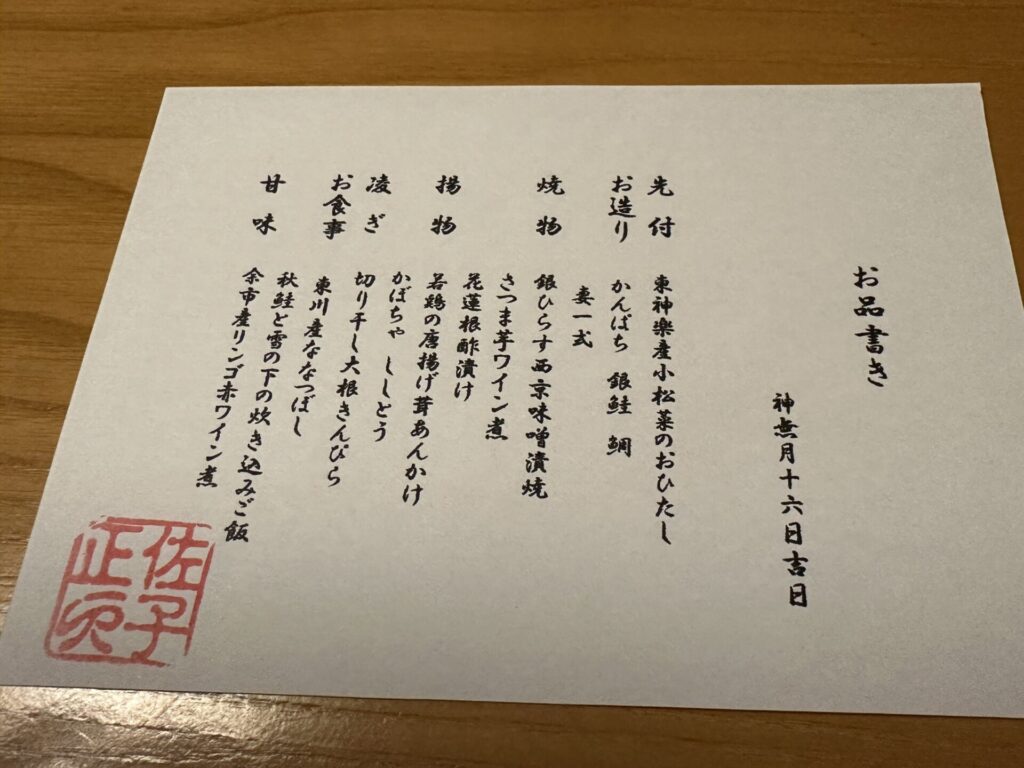 お品書き
神無月十六日吉日
先付
東神楽産小松菜のおひたし
お造り
かんぱち 銀鮭 鯛
妻一式
焼物
銀ひらす西京味噌漬焼
さつま芋ワイン煮
花蓮根酢漬け
揚物
若鶏の唐揚げ茸あんかけ
かぼちゃ ししとう
凌ぎ
切り干し大根きんぴら
お食事
東川産ななつぼし
秋鮭と雪の下の炊き込みご飯
甘味
余市産リンゴ赤ワイン煮
佐子
正